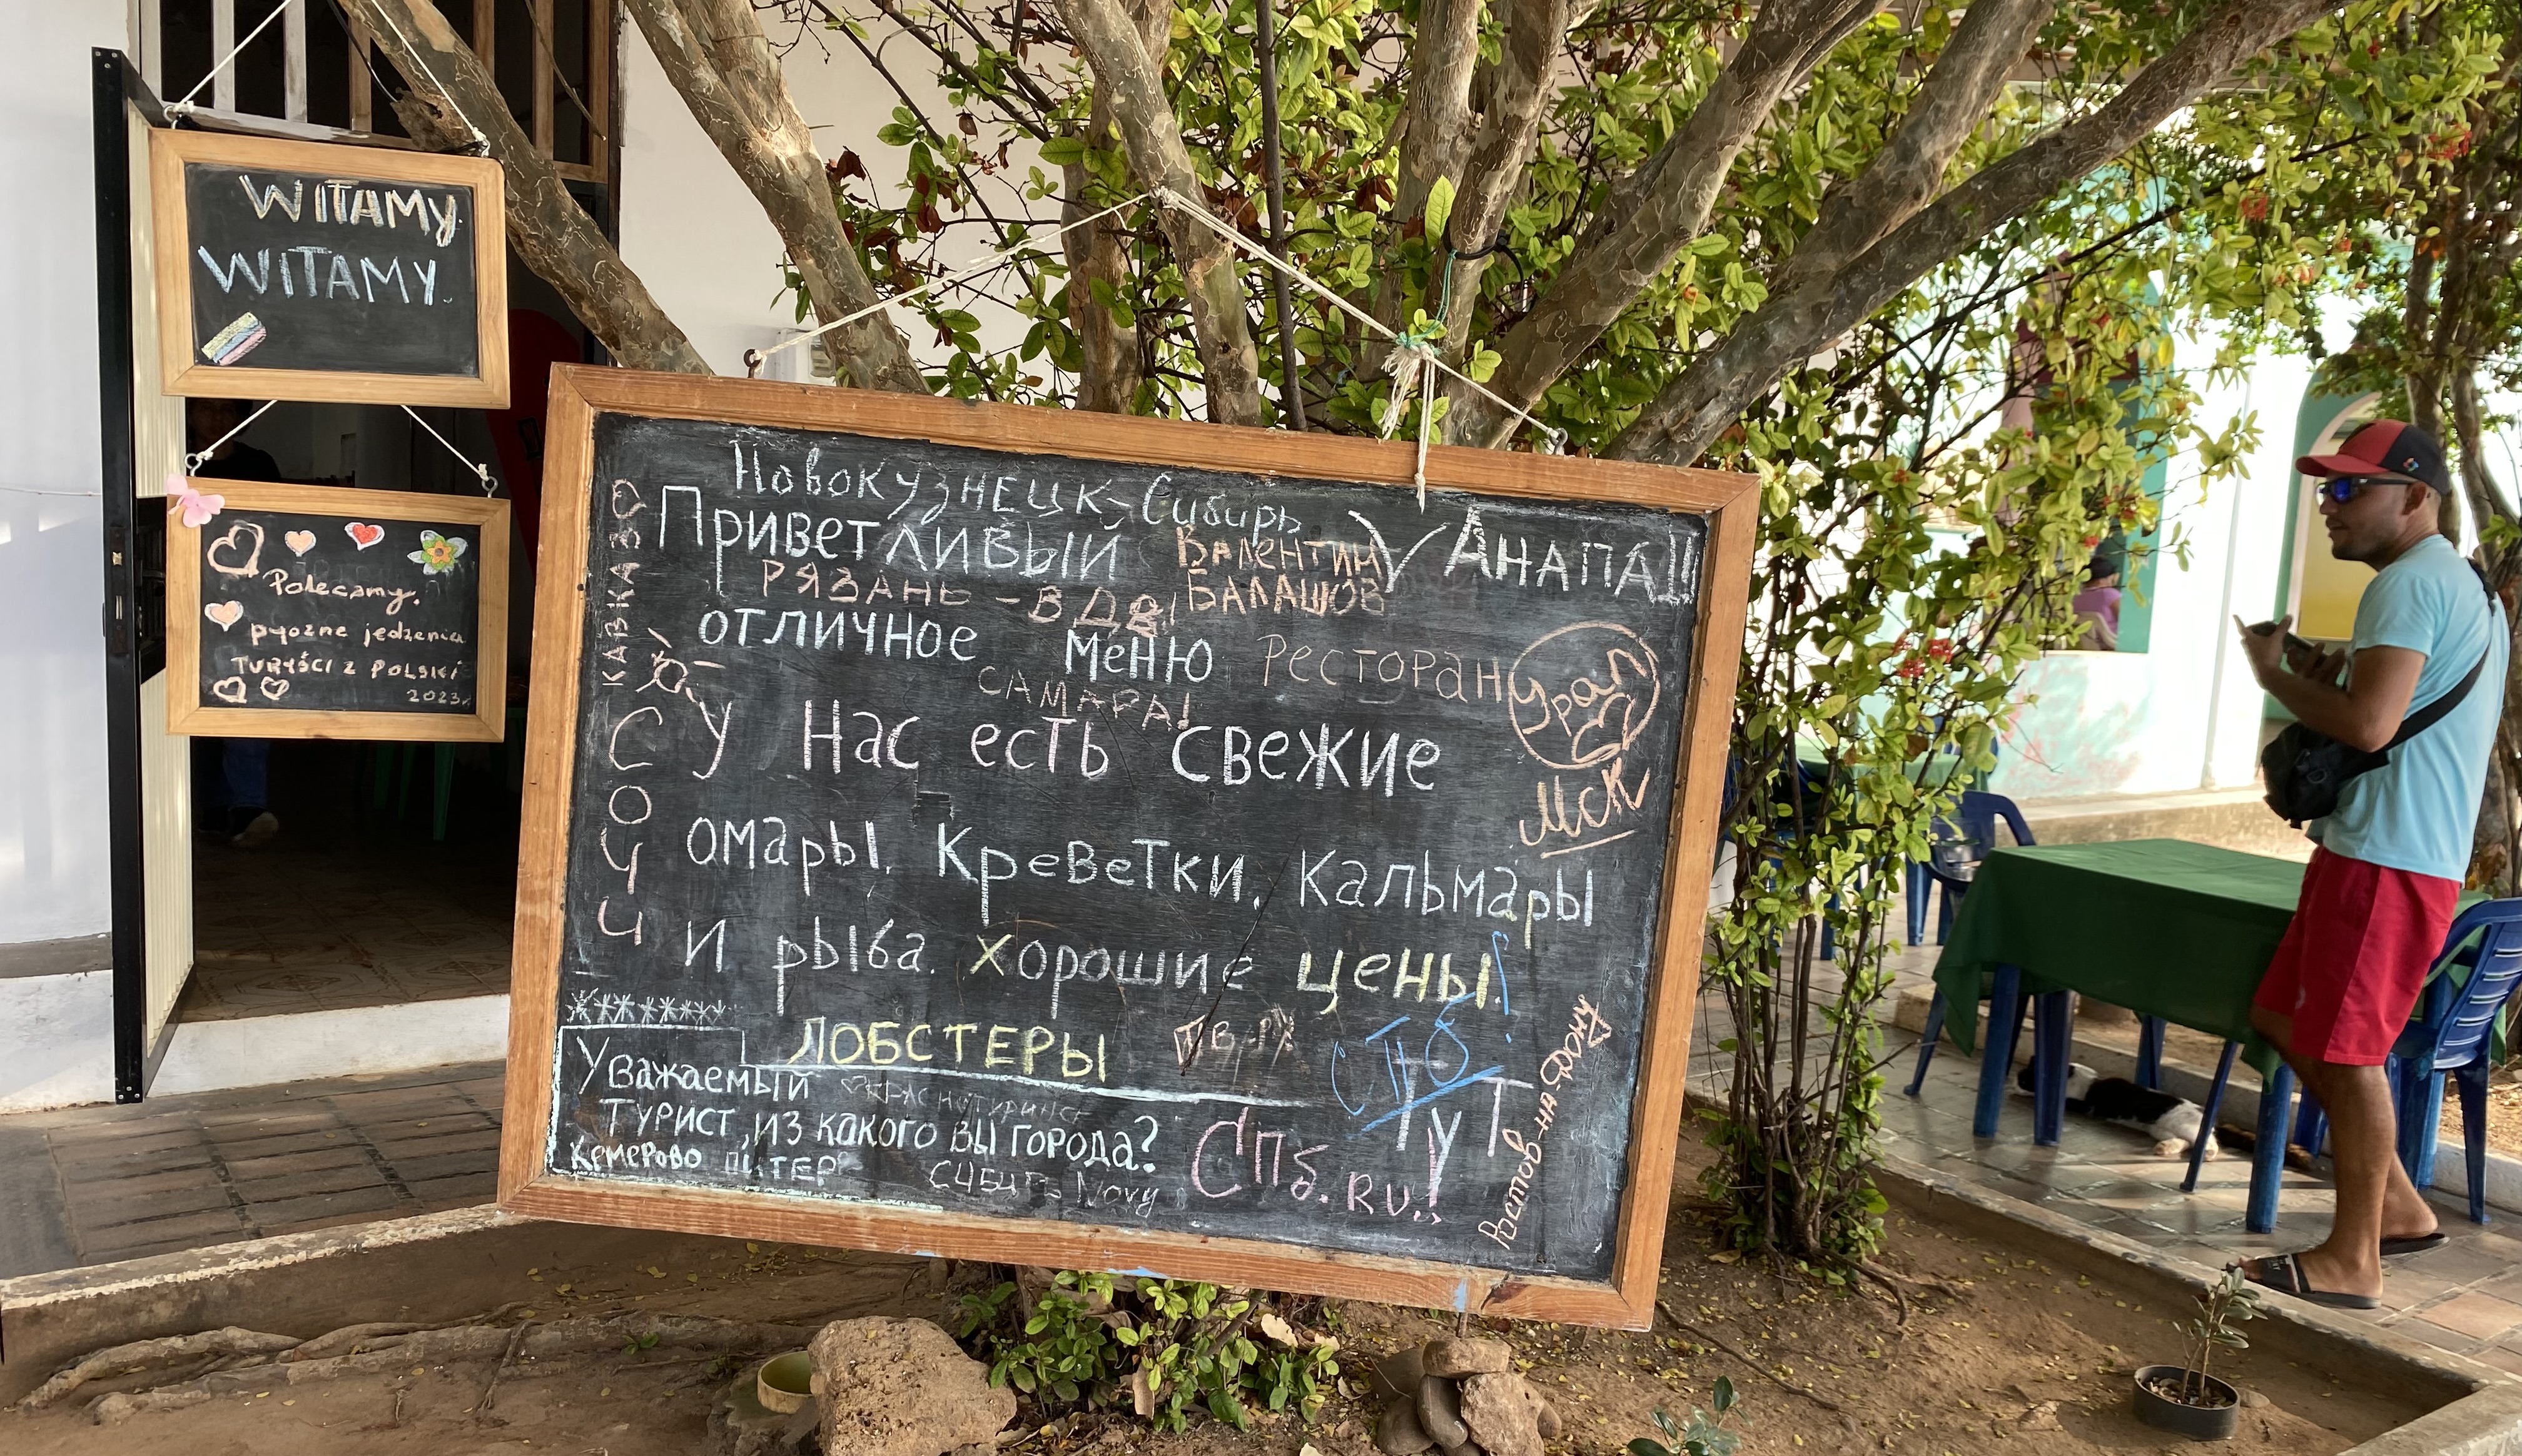 WITAMY
WITAMY.
Polecamy.
pyszne jedzenie
TURYŚCI Z POLSKI
2023r.
Новокузнецк-Сибирь
Приветливый
Валентин
БАЛАШОВ
АНАПА!!
РЯЗАНЬ - ВДВ!
отличное меню Ресторан
САМАРА!
Урал
МСК
КАВКАЗ
СОЧИ
У Нас есть свежие
омары, Креветки, Кальмары
и рыба. Хорошие цены!
ЛОБСТЕРЫ
СПб
Тут!
Ростов-на-Дону
Уважаемый
Турист, из какого вы города?
Кемерово ПИТЕР
Сибирь Novy
СПб.RU!